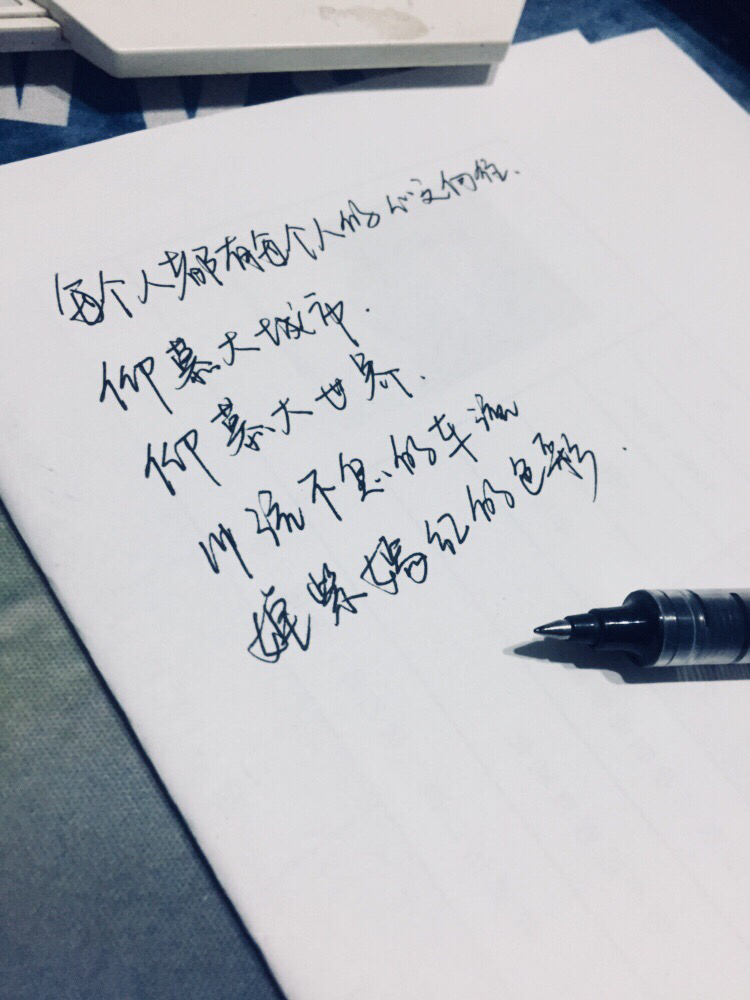 每个人都有每个人的心之向往.
仰慕大城市.
仰慕大世界.
川流不息的车流
姹紫嫣红的色彩.